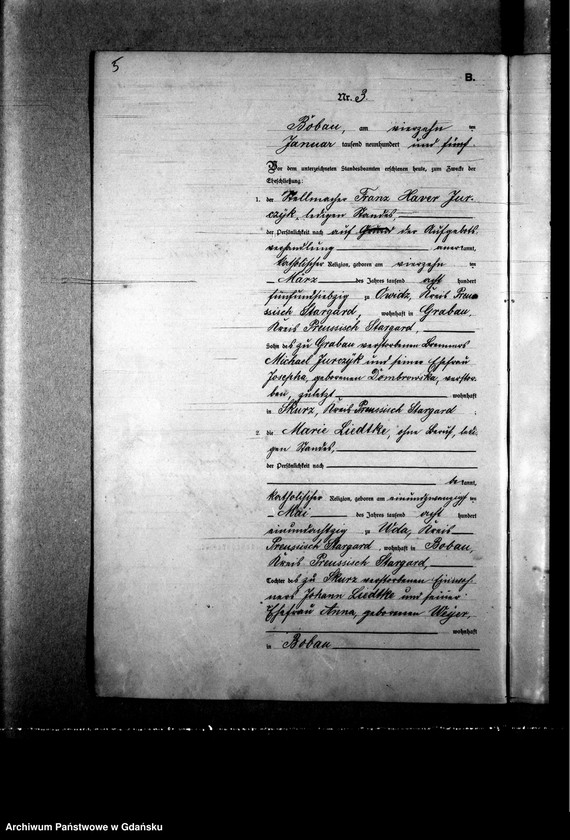 5
B.
Nr. 3.
Bobau, am vierzehn ten
Januar tausend neunhundert und fünf.
Vor dem unterzeichneten Standesbeamten erschienen heute, zum Zwecke der
Eheschließung:
1. der Stellmacher Franz Xaver Jur-
czyk, ledigen Standes,
der Persönlichkeit nach auf Grund der Aufgebots-
verhandlung anerkannt,
katholischer Religion, geboren am vierzehn ten
März des Jahres tausend acht hundert
fünfundsiebzig zu Owidz, Kreis Preu-
ssisch Stargard, wohnhaft in Grabau,
Kreis Preussisch Stargard,
Sohn des zu Grabau verstorbenen Brenners
Michael Jurczyk und seiner Ehefrau
Josepha, geborenen Dombrowska, verstor-
ben, zuletzt wohnhaft
in Skurz, Kreis Preussisch Stargard ;
2. die Marie Liedtke, ohne Beruf, ledi-
gen Standes,
der Persönlichkeit nach
bekannt,
katholischer Religion, geboren am einundzwanzigsten
Mai des Jahres tausend acht hundert
einundachtzig zu Wda, Kreis
Preussisch Stargard, wohnhaft in Bobau,
Kreis Preussisch Stargard,
Tochter des zu Skurz verstorbenen Einwoh-
ners Johann Liedtke und seiner
Ehefrau Anna, geborenen Weyer,
wohnhaft
in Bobau
Archiwum Państwowe w Gdańsku